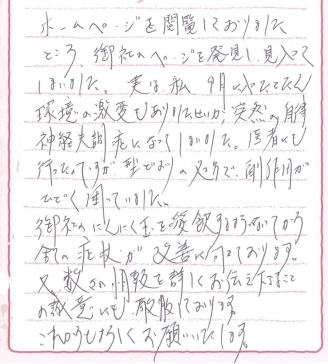 ホームページを閲覧しておりました
ところ、御社のページを発見し見入って
しまいました。実は私 9月に入ってたくん
環境の激変もありましたせいか突然の自律
神経失調症になってしまいました。医者にも
行ったのですが型どおりの処方で、副作用が
ひどく困っていました。
御社のにんにく玉を飲用するようになってから
全ての症状が改善に向っております。
又、数々の情報を詳しくお伝え下さること
の誠意にも敬服しております。
これからもよろしくお願いいたします。